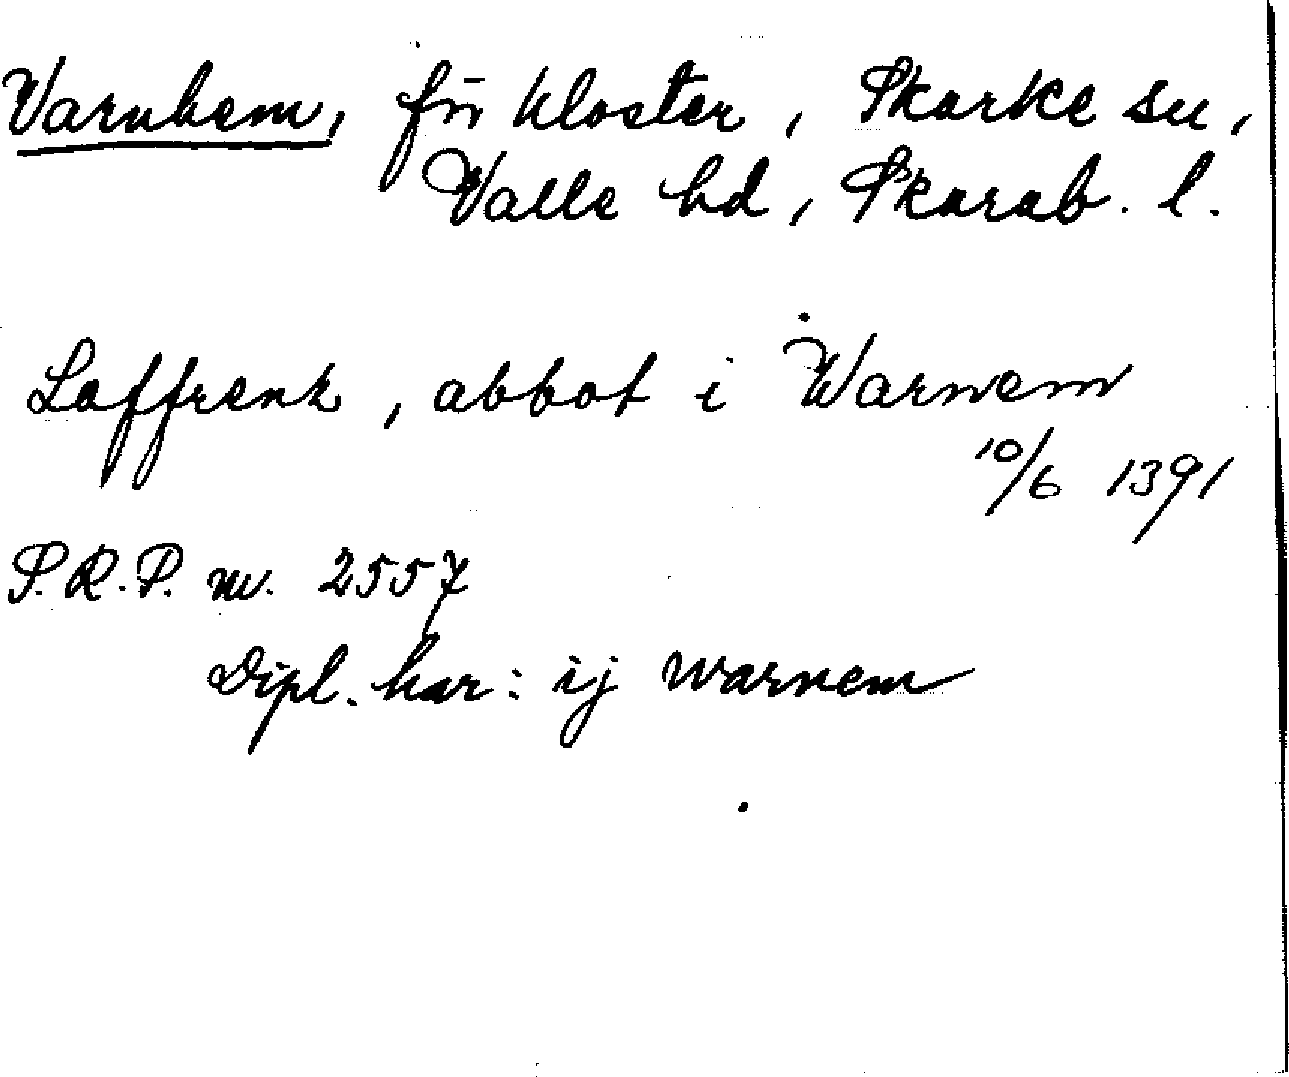 Varnhem, f.n kloster, Skarke sn,
Valle hd, Skarab. l.
Laffrenz, abbot i Warnem
10/6 1391
S.R.P. nr. 2557
Dipl. har: ij warnem